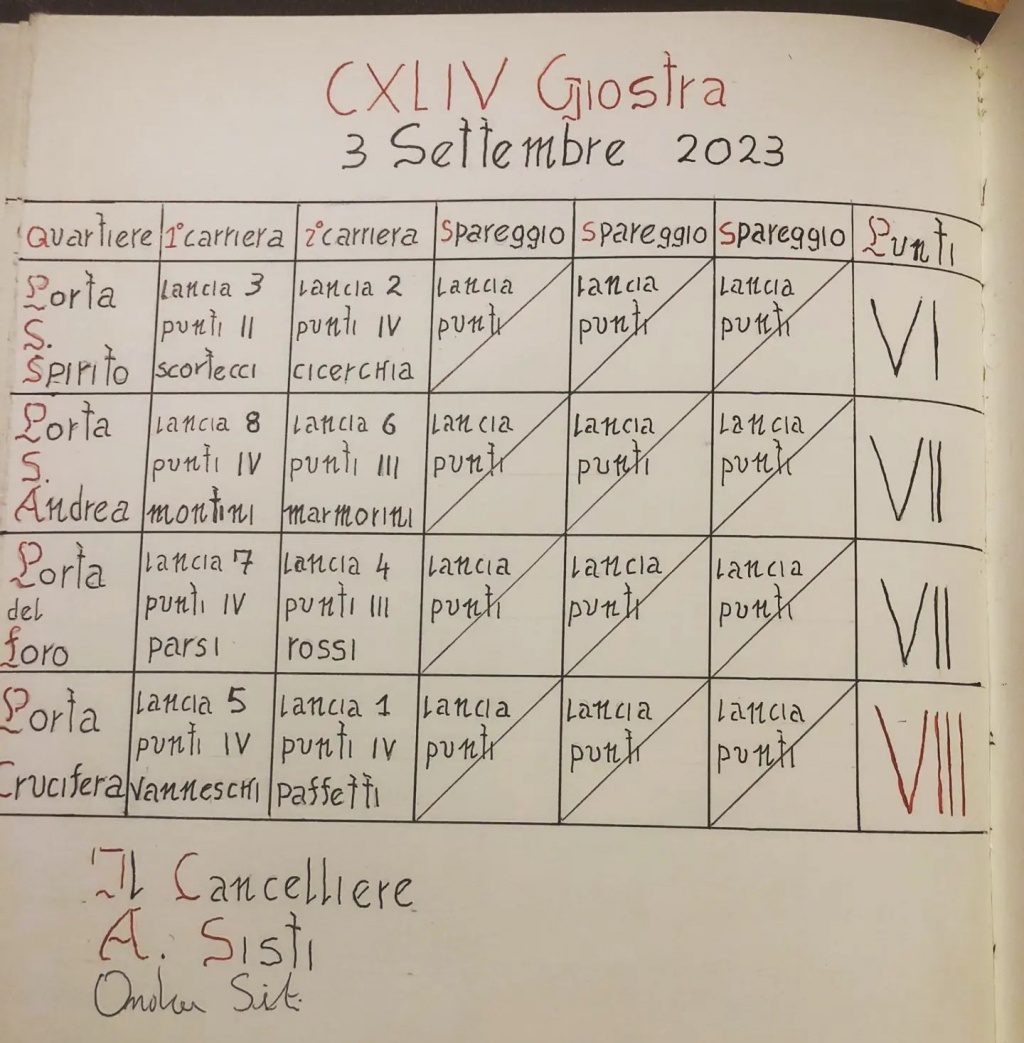 CXLIV Giostra
3 Settembre 2023
Quartiere 1° carriera 2° carriera Spareggio Spareggio Spareggio Punti
Porta Lancia 3 Lancia 2 Lancia Lancia Lancia
S. punti II punti IV punti punti punti VI
Spirito scortecci cicerchia
Porta Lancia 8 Lancia 6 Lancia Lancia Lancia
S. punti IV punti III punti punti punti VII
Andrea montini marmorini
Porta Lancia 7 Lancia 4 Lancia Lancia Lancia
del punti IV punti III punti punti punti VII
foro parsi rossi
Porta Lancia 5 Lancia 1 Lancia Lancia Lancia
punti IV punti IV punti punti punti VIII
Crucifera Vanneschi paffetti
Il Cancelliere
A. Sisti